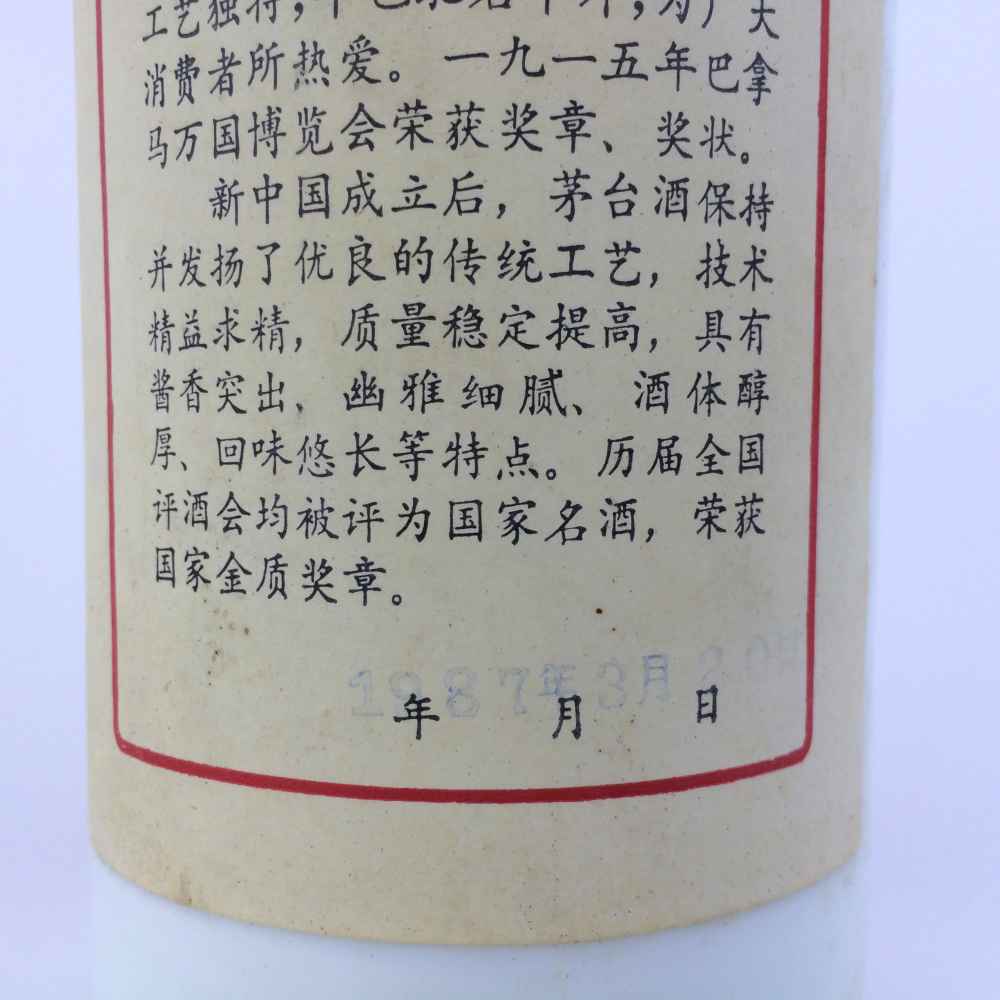 工艺独特，早已驰名中外，为广大
消费者所热爱。一九一五年巴拿
马万国博览会荣获奖章、奖状。
新中国成立后，茅台酒保持
并发扬了优良的传统工艺，技术
精益求精，质量稳定提高，具有
酱香突出、幽雅细腻、酒体醇
厚、回味悠长等特点。历届全国
评酒会均被评为国家名酒，荣获
国家金质奖章。
1987年3月20日
年 月 日